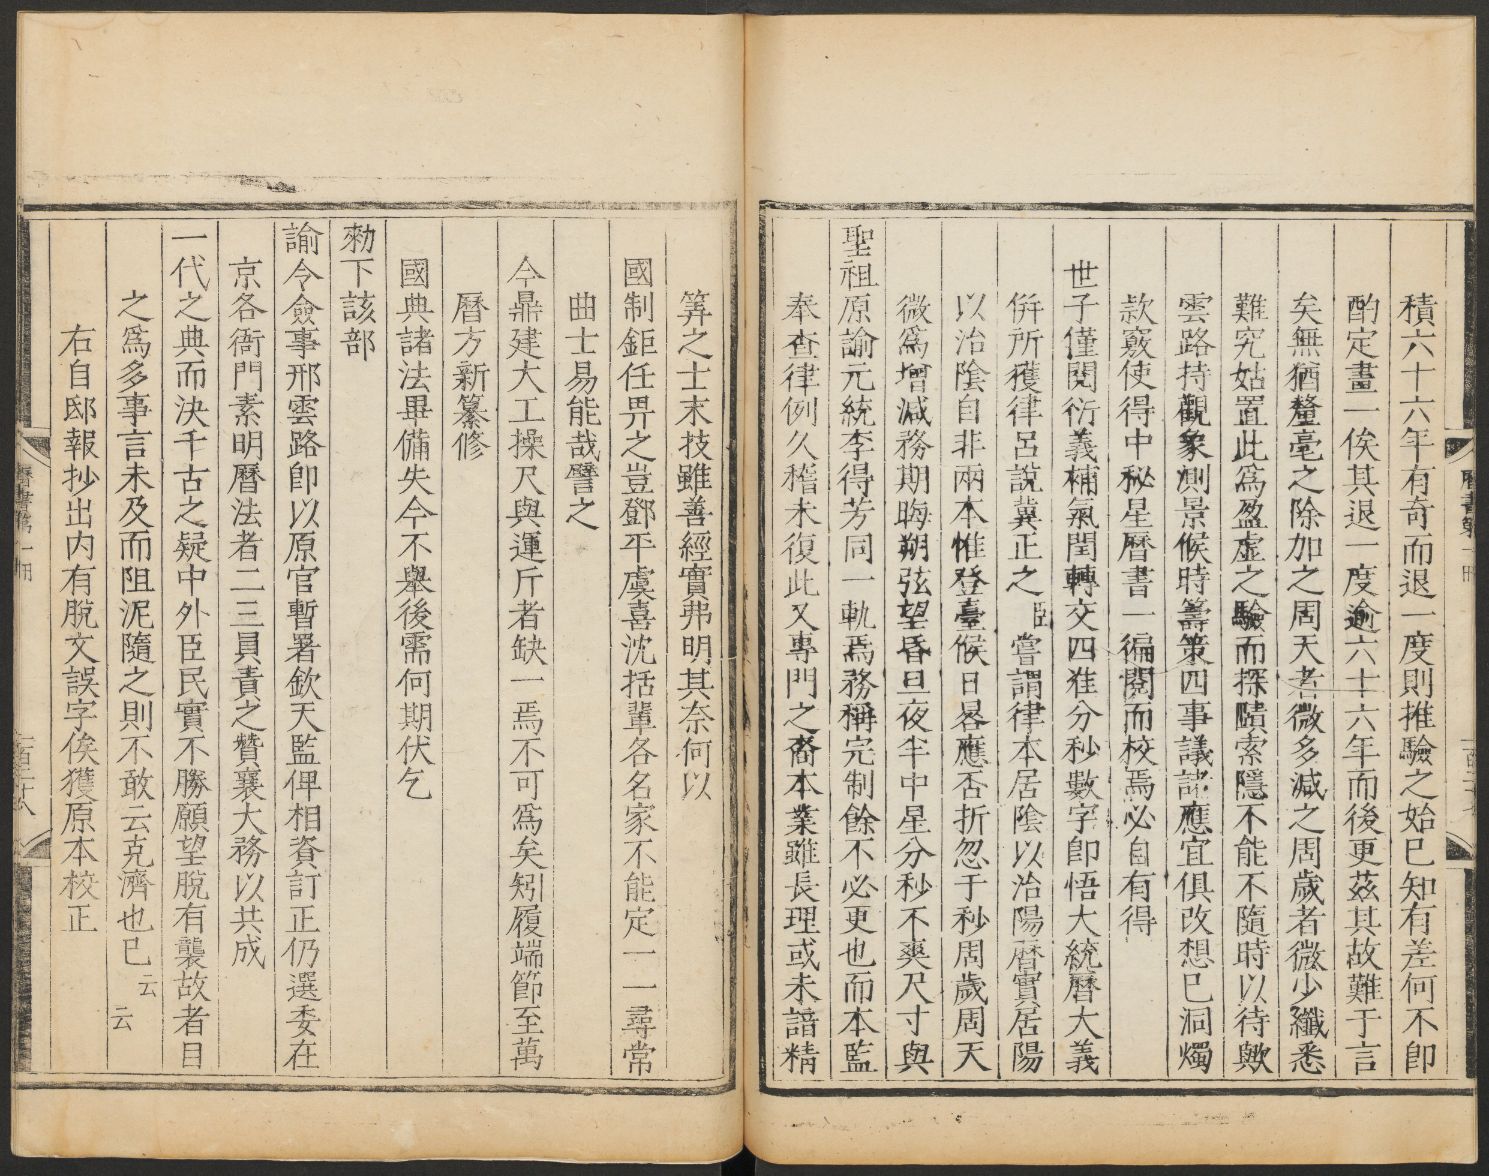 積六十六年有奇而退一度則推驗之始已知有差何不卽
酌定畫一俟其退一度逾六十六年而後更茲其故難于言
矣無猶釐毫之除加之周天者微多減之周歲者微少纖悉
難究姑置此爲盈虛之驗而探賾索隱不能不隨時以待歟
雲路持觀象測景候時籌策四事議諸應宜俱改想已洞燭
款竅使得中秘星曆書一徧閱而校焉必自有得
世子僅閱衍義補氣閏轉交四准分秒數字卽悟大統曆大義
併所獲律呂說冀正之臣嘗謂律本居陰以治陽曆實居陽
以治陰自非兩本惟登臺候日晷應否折忽于秒周歲周天
微爲增減務期晦朔弦望昏旦夜半中星分秒不爽尺寸與
聖祖原諭元統李得芳同一軌焉務稱完制餘不必更也而本監
奉查律例久稽未復此又專門之裔本業雖長理或未諳精
筭之士末技雖善經實弗明其奈何以
國制鉅任畀之豈鄧平虞喜沈括輩各名家不能定一一尋常
曲士易能哉譬之
今鼎建大工操尺與運斤者缺一焉不可爲矣矧履端節至萬
曆方新纂修
國典諸法畢備失今不舉後需何期伏乞
勑下該部
諭令僉事邢雲路卽以原官暫署欽天監俾相資訂正仍選委在
京各衙門素明曆法者二三員責之贊襄大務以共成
一代之典而決千古之疑中外臣民實不勝願望脫有襲故者目
之爲多事言未及而阻泥隨之則不敢云克濟也已云云
右自邸報抄出內有脫文誤字俟獲原本校正
曆書第一冊